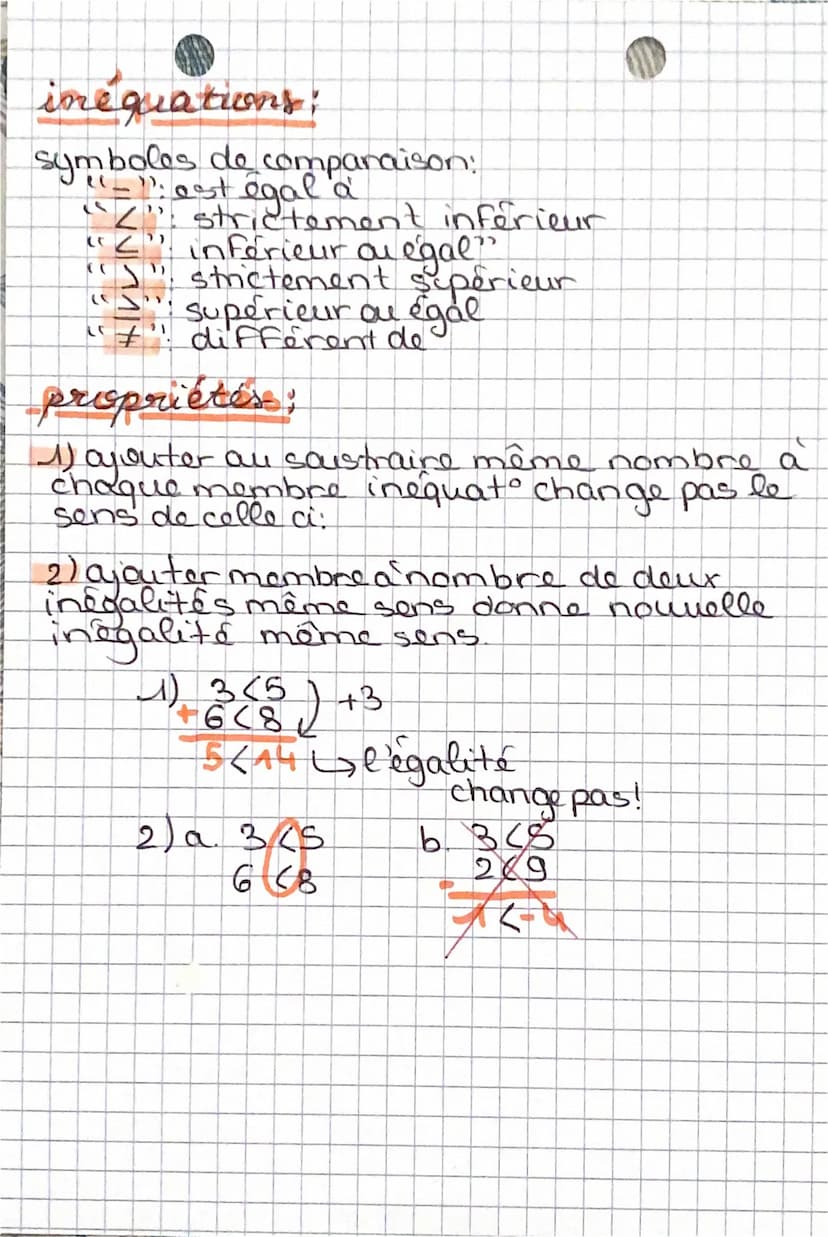 inéquations:
symboles de comparaison:
"=": est égal à
"<": strictement inférieur
"≤": inférieur ou égal"
">": strictement supérieur
"≥": supérieur ou égal
"≠": différent de
propriétés:
1) ajouter ou soustraire même nombre à
chaque membre inéquat° change pas le
sens de celle ci:
2) ajouter membre à nombre de deux
inégalités même sens donne nouvelle
inégalité même sens.
1) 3<5
+6<8 +3
5<14 ↳ l'égalité
change pas!
2) a. 3<5 b. 3<5
6<8 - 2<9
1<-4